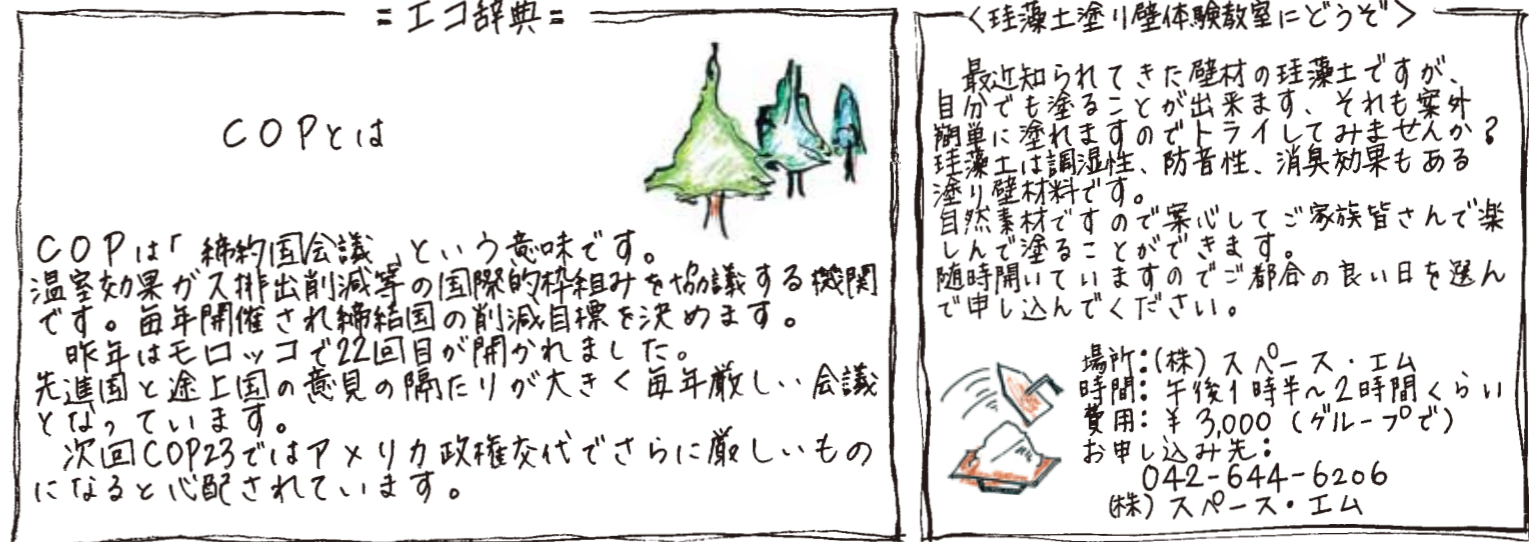 =エコ辞典=
COPとは
COPは「締約国会議」という意味です。
温室効果ガス排出削減等の国際的枠組みを協議する機関
です。毎年開催され締結国の削減目標を決めます。
昨年はモロッコで22回目が開かれました。
先進国と途上国の意見の隔たりが大きく毎年厳しい会議
となっています。
次回COP23ではアメリカ政権交代でさらに厳しいもの
になると心配されています。
<珪藻土塗り壁体験教室にどうぞ>
最近知られてきた壁材の珪藻土ですが、
自分でも塗ることが出来ます、それも案外
簡単に塗れますのでトライしてみませんか?
珪藻土は調湿性、防音性、消臭効果もある
塗り壁材料です。
自然素材ですので案心してご家族皆さんで楽
しんで塗ることができます。
随時開いていますのでご都合の良い日を選ん
で申し込んでください。
場所:(株)スペース・エム
時間:午後1時半~2時間くらい
費用:¥3,000(グループで)
お申し込み先:
042-644-6206
(株)スペース・エム